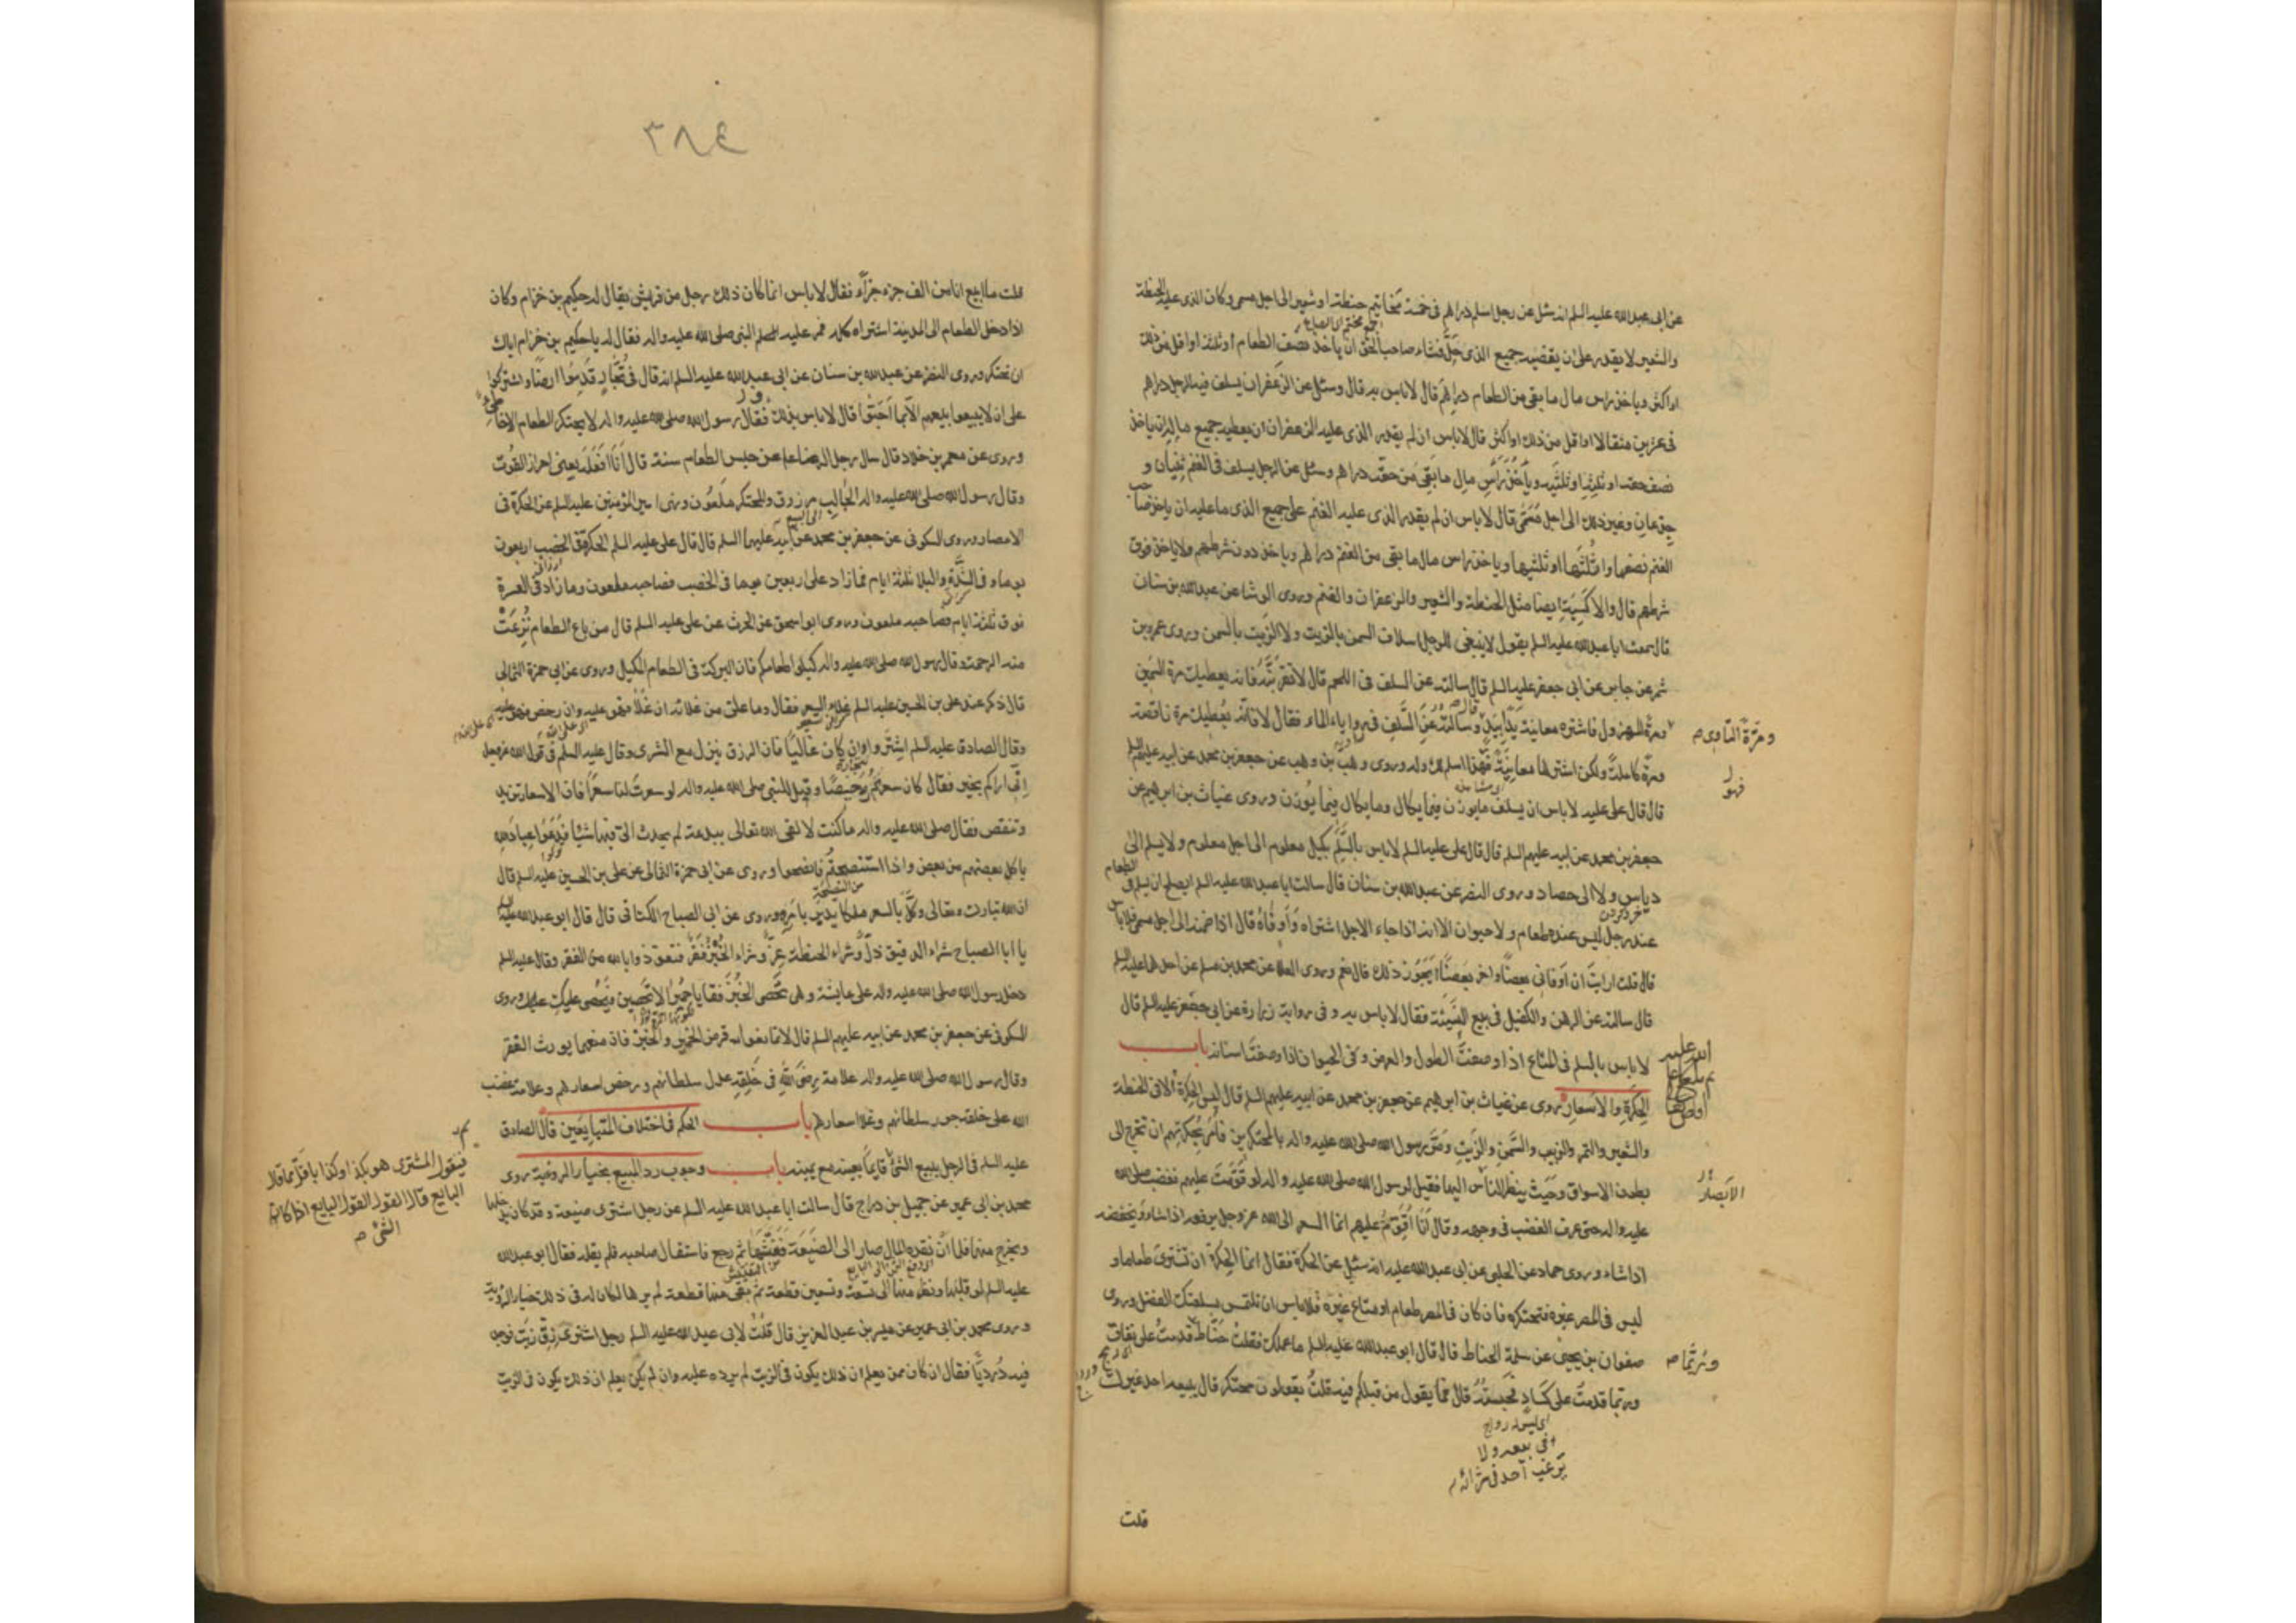 عن ابى عبدالله عليه السلم انه سئل عن رجل اسلم دراهم فى خمسة مخاتيم حنطة او شعير الى اجل مسمى وكان الذى عليه الحنطة
والشعير لا يقدر على ان يقضيه جميع الذى حل فشاء صاحب الحق ان ياخذ نصف الطعام او ثلثه او اقل من ذلك
او اكثر وياخذ راس مال ما بقى من الطعام دراهم قال لا باس به قال وسئل عن الزعفران يسلف فيه الرجل دراهم
فى عشرين مثقالا او اقل من ذلك او اكثر قال لا باس ان لم يقدر الذى عليه الزعفران ان يعطيه جميع ماله ان ياخذ
نصف حقه او ثلثه او ثلثيه وياخذ راس مال ما بقى من حقه دراهم وسئل عن الرجل يسلف فى الغنم ثنيان و
جذعان وغير ذلك الى اجل مسمى قال لا باس ان لم يقدر الذى عليه الغنم على جميع الذى ما عليه ان ياخذ صاحب
الغنم نصفها او ثلثها او ثلثيها وياخذ راس مال ما بقى من الغنم دراهم وياخذ دون شرطهم ولا ياخذ فوق
شرطهم قال والاكسية ايضا مثل الحنطة والشعير والزعفران والغنم وروى الوشا عن عبدالله بن سنان
قال سمعت ابا عبدالله عليه السلم يقول لا ينبغى للرجل اسلاف السمن بالزيت ولا الزيت بالسمن وروى عمرو بن
شمر عن جابر عن ابى جعفر عليه السلم قال سالته عن السلف فى اللحم قال لا تقربنه فانه يعطيك مرة السمين
ومرة المهزول فاشتره معاينة يدا بيد وسالته عن السلف فى روايا الماء فقال لا فانه يعطيك مرة ناقصة
ومرة كاملة ولكن اشترها معاينة فهذا اسلم لك وله وروى وهب بن وهب عن جعفر بن محمد عن ابيه عليهم السلم
قال قال على عليه لا باس ان يسلف ما يوزن فيما يكال وما يكال فيما يوزن وروى غياث بن ابرهيم عن
جعفر بن محمد عن ابيه عليهم السلم قال قال على عليه السلم لا باس بالسلم بكيل معلوم الى اجل معلوم ولا يسلم الى
دياس ولا الى حصاد وروى النضر عن عبدالله بن سنان قال سالت ابا عبدالله عليه السلم ايصلح ان يسلم فى الطعام
عند رجل ليس عنده طعام ولا حيوان الا انه اذا جاء الاجل اشتراه واوفاه قال اذا ضمنه الى اجل مسمى فلا باس
قال قلت ارايت ان اوفانى بعضا واخر بعضا ايجوز ذلك قال نعم وروى العلا عن محمد بن مسلم عن احدهما عليهما السلم
قال سالته عن الرهن والكفيل فى بيع النسيئة فقال لا باس به وفى رواية زرارة عن ابى جعفر عليه السلم قال
لا باس بالسلم فى المتاع اذا وصفت الطول والعرض وفى الحيوان اذا وصفت اسنانه باب
الحكرة والاسعار روى عن غياث بن ابرهيم عن جعفر بن محمد عن ابيه عليهم السلم قال ليس الحكرة الا فى الحنطة
والشعير والتمر والزبيب والسمن والزيت ومر رسول الله صلى الله عليه واله بالمحتكرين فامر بحكرتهم ان تخرج الى
بطون الاسواق وحيث ينظر الناس اليها فقيل لرسول الله صلى الله عليه واله لو قومت عليهم فغضب صلى الله
عليه واله حتى عرف الغضب فى وجهه وقال انا اقوم عليهم انما السعر الى الله عز وجل يرفعه اذا شاء ويخفضه
اذا شاء وروى حماد عن الحلبى عن ابى عبدالله عليه انه سئل عن الحكرة فقال انما الحكرة ان تشترى طعاما و
ليس فى المصر غيره فتحتكره فان كان فى المصر طعام او متاع غيره فلا باس ان تلتمس بسلعتك الفضل وروى
صفوان بن يحيى عن سلمة الحناط قال قال ابو عبدالله عليه السلم ما عملك فقلت حناط قدمت على نفاق
وربما قدمت على كساد فحبسته قال فما يقول من قبلكم فيه قلت يقولون محتكر قال يبيعه احد غيرك
اى ليس له رواج
فى بيعه ولا
يرغب احد فى شرائه
قلت
ومرة التاوى ص
الابصار
وربما ص
٣٨٤
قلت ما ابيع انا من الف جزء جزأ فقال لا باس انما كان ذلك رجل من قريش يقال له حكيم بن حزام وكان
اذا دخل الطعام الى المدينة اشتراه كله فمر عليه النبى صلى الله عليه واله فقال له يا حكيم بن حزام اياك
ان تحتكر وروى النضر عن عبدالله بن سنان عن ابى عبدالله عليه السلم انه قال فى تجار قدموا ارضا واشتركوا
على ان لا يبيعوا بيعهم الا بما احبوا قال لا باس بذلك وقال رسول الله صلى الله عليه واله لا يحتكر الطعام الا خاطئ
وروى عن معمر بن خلاد قال سال رجل الرضا عن حبس الطعام سنة قال انا افعله يعنى احراز القوت
وقال رسول الله صلى الله عليه واله الجالب مرزوق والمحتكر ملعون ونهى امير المؤمنين عليه السلم عن الحكرة فى
الامصار وروى السكونى عن جعفر بن محمد عن ابيه عليهما السلم قال قال على عليه السلم الحكرة فى الخصب اربعون
يوما وفى الشدة والبلا ثلثة ايام فما زاد على اربعين يوما فى الخصب فصاحبه ملعون وما زاد فى العسرة
فوق ثلثة ايام فصاحبه ملعون وروى ابو اسحق عن الحرث عن على عليه السلم قال من باع الطعام نزعت
منه الرحمة وقال رسول الله صلى الله عليه واله كيلوا طعامكم فان البركة فى الطعام المكيل وروى عن ابى حمزة الثمالى
قال ذكر عند على بن الحسين عليه السلم غلاء السعر فقال وما على من غلائه ان غلا فهو عليه وان رخص فهو عليه
وقال الصادق عليه السلم اشتروا وان كان غاليا فان الرزق ينزل مع الشرى وقال عليه السلم فى قول الله عز وجل
انى اراكم بخير فقال كان سعرهم رخيصا وقيل للنبى صلى الله عليه واله لو سعرت لنا سعرا فان الاسعار تزيد
وتنقص فقال صلى الله عليه واله ما كنت لالقى الله تعالى ببدعة لم يحدث الى فيها شيئا فدعوا عباد الله
ياكل بعضهم من بعض واذا استنصحتم فانصحوا وروى عن ابى حمزة الثمالى عن على بن الحسين عليه السلم قال
ان الله تبارك وتعالى وكل بالسعر ملكا يدبره بامره وروى عن ابى الصباح الكنانى قال قال ابو عبدالله عليه السلم
يا ابا الصباح شراء الدقيق ذل وشراء الحنطة عز وشراء الخبز فقر فنعوذ بالله من الفقر وقال عليه السلم
دخل رسول الله صلى الله عليه واله على عايشة وهى تحصى الخبز فقال يا حميرا لا تحصين فيحصى عليك وروى
السكونى عن جعفر بن محمد عن ابيه عليهم السلم قال لا تمانعوا قرض الخمير والخبز فان منعهما يورث الفقر
وقال رسول الله صلى الله عليه واله علامة رضى الله فى خلقه عدل سلطانهم ورخص اسعارهم وعلامة غضب
الله على خلقه جور سلطانهم وغلا اسعارهم باب الحكم فى اختلاف المتبايعين قال الصادق
عليه السلم فى الرجل يبيع الشئ قايما بعينه مع يمينه باب وجوب رد المبيع بخيار الروية روى
محمد بن ابى عمير عن جميل بن دراج قال سالت ابا عبدالله عليه السلم عن رجل اشترى ضيعة وقد كان يدخلها
ويخرج منها فلما ان نقد المال صار الى الضيعة ففتشها ثم رجع فاستقال صاحبه فلم يقله فقال ابو عبدالله
عليه السلم لو قلبها ونظر منها الى تسعة وتسعين قطعة ثم بقى منها قطعة لم يرها لكان له فى ذلك خيار الروية
وروى محمد بن ابى عمير عن ميسر بن عبد العزيز قال قلت لابى عبدالله عليه السلم رجل اشترى زق زيت فوجد
فيه درديا فقال ان كان ممن يعلم ان ذلك يكون فى الزيت لم يرده عليه وان لم يكن يعلم ان ذلك يكون فى الزيت
فيقول المشترى هو بكذا وكذا باقل مما قال
البايع قال القول القول البايع اذا كان
الشئ ص